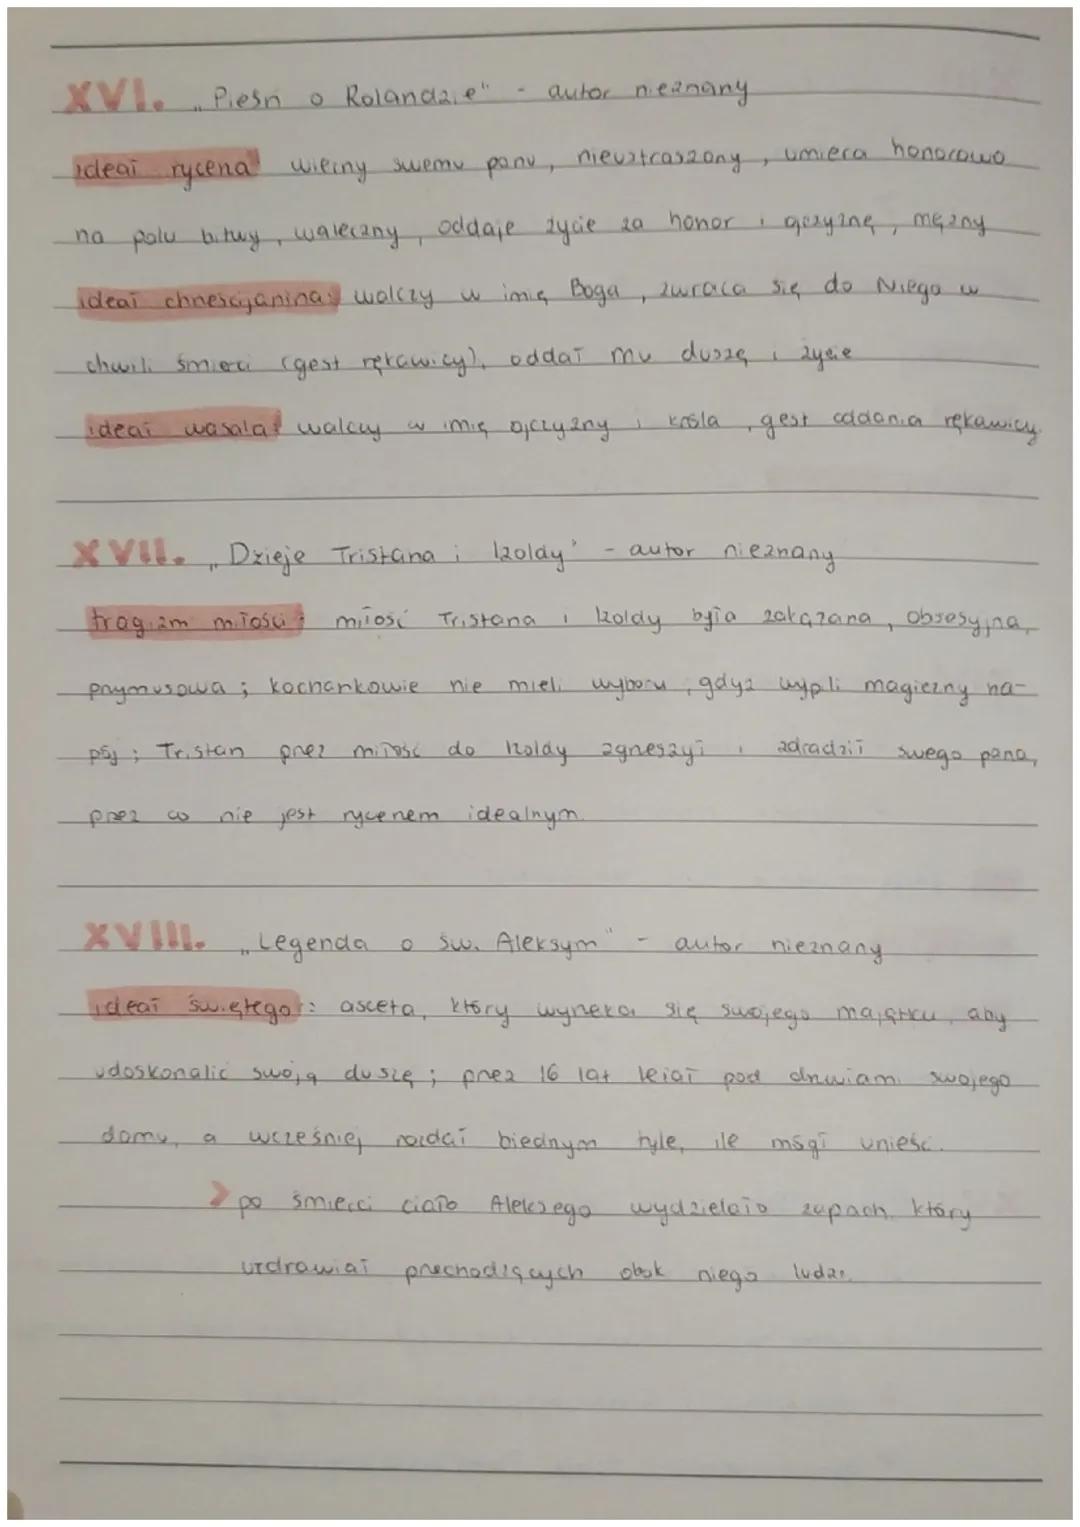 XVI. „Pieśń o Rolandzie" - autor nieznany
ideał rycerza: wierny swemu panu, nieustraszony, umiera honorowo
na polu bitwy, waleczny, oddaje życie za honor i ojczyznę, mężny
ideał chrześcijanina: walczy w imię Boga, zwraca się do Niego w
chwili śmierci (gest rękawicy), oddał mu duszę i życie
ideał wasala: walczy w imię ojczyzny i króla, gest oddania rękawicy.
XVII. „Dzieje Tristana i Izoldy" - autor nieznany
tragizm miłości: miłość Tristana i Izoldy była zakazana, obsesyjna,
przymusowa; kochankowie nie mieli wyboru, gdyż wypili magiczny na-
pój; Tristan przez miłość do Izoldy zgrzeszył i zdradził swego pana,
przez co nie jest rycerzem idealnym.
XVIII. „Legenda o św. Aleksym" - autor nieznany
ideał świętego: asceta, który wyrzeka się swojego majątku, aby
udoskonalić swoją duszę; przez 16 lat leżał pod drzwiami swojego
domu, a wcześniej rozdał biednym tyle, ile mógł unieść.
> po śmierci ciało Aleksego wydzielało zapach, który
uzdrawiał przechodzących obok niego ludzi.